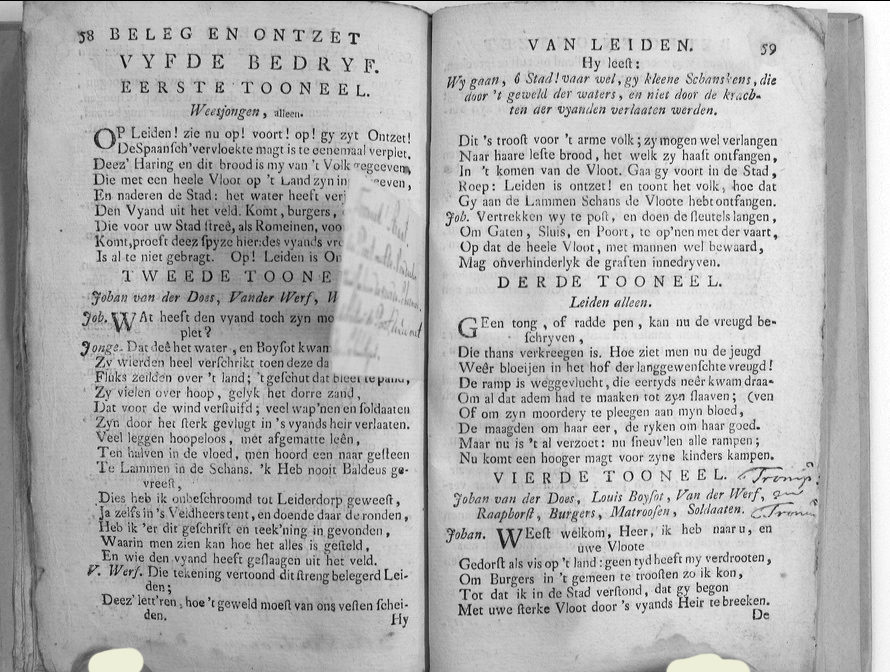 58 BELEG EN ONTZET
VYFDE BEDRYF.
EERSTE TOONEEL.
Weesjongen, alleen.
OP Leiden! zie nu op! voort! op! gy zyt Ontzet!
De Spaansch' vervloekte magt is te eenemaal verplet.
Deez' Haring en dit brood is my van 't Volk gegeeven,
Die met een heele Vloot op 't Land zyn in
En naderen de Stad: het water heeft
Den Vyand uit het veld. Komt, burgers,
Die voor uw Stad streê, als Romeinen,
Komt, proeft deez spyze hier: des vyands
Is al te niet gebragt. Op! Leiden is
TWEEDE
Johan van der Does, Vander Werf,
Job. WAt heeft den vyand toch zyn
plet?
Jonge. Dat deê het water, en Boysot
Zy wierden heel verschrikt toen deze
Fluks zeilden over 't land; 't geschut dat bleef te pand,
Zy vielen over hoop, gelyk het dorre zand,
Dat voor de wind verstuifd; veel wap'nen en soldaaten
Zyn door het sterk gevlugt in 's vyands heir verlaaten.
Veel leggen hoopeloos, met afgematte leên,
Ten halven in de vloed, men hoord een naar gesteen
Te Lammen in de Schans. 'k Heb nooit Baldeus ge-
vreest,
Dies heb ik onbeschroomd tot Leiderdorp geweest,
Ja zelfs in 's Veldheers tent, en doende daar de ronden,
Heb ik 'er dit geschrift en teek'ning in gevonden,
Waarin men zien kan hoe het alles is gesteld,
En wie den vyand heeft geslaagen uit het veld.
V. Werf. Die tekening vertoond dit streng belegerd Lei-
den;
Deez' lett'ren, hoe 't geweld moest van ons vesten schei-
den.
Hy
VAN LEIDEN. 59
Hy leest:
Wy gaan, ô Stad! vaar wel, gy kleene Schanskens, die
door 't geweld der waters, en niet door de krach-
ten der vyanden verlaaten werden.
Dit 's troost voor 't arme volk; zy mogen wel verlangen
Naar haare leste brood, het welk zy haast ontfangen,
In 't komen van de Vloot. Gaa gy voort in de Stad,
Roep: Leiden is ontzet! en toont het volk, hoe dat
Gy aan de Lammen Schans de Vloote hebt ontfangen.
Job. Vertrekken wy te post, en doen de sleutels langen,
Om Gaten, Sluis, en Poort, te op'nen met der vaart,
Op dat de heele Vloot, met mannen wel bewaard,
Mag onverhinderlyk de graften innedryven.
DERDE TOONEEL.
Leiden alleen.
GEen tong, of radde pen, kan nu de vreugd be-
schryven,
Die thans verkreegen is. Hoe ziet men nu de jeugd
Weêr bloeijen in het hof der langgewenschte vreugd!
De ramp is weggevlucht, die eertyds neêr kwam draa-
Om al dat adem had te maaken tot zyn slaaven; (ven
Of om zyn moordery te pleegen aan myn bloed,
De maagden om haar eer, de ryken om haar goed.
Maar nu is 't al verzoet: nu sneuv'len alle rampen;
Nu komt een hooger magt voor zyne kinders kampen.
VIERDE TOONEEL.
Johan van der Does, Louis Boysot, Van der Werf,
Raaphorst, Burgers, Matroosen, Soldaaten.
Johan. WEest welkom, Heer, ik heb naar u, en
uwe Vloote
Gedorst als vis op 't land: geen tyd heeft my verdrooten,
Om Burgers in 't gemeen te troosten zo ik kon,
Tot dat ik in de Stad verstond, dat gy begon
Met uwe sterke Vloot door 's vyands Heir te breeken.
De